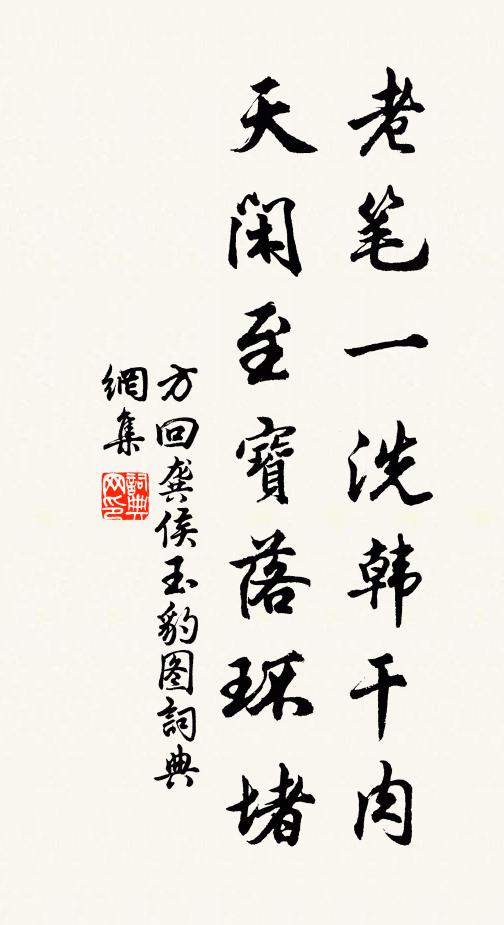 老笔一洗韩干肉
天闲至寶落环堵
方回龚侯玉豹图詞典
網集
詞典网印